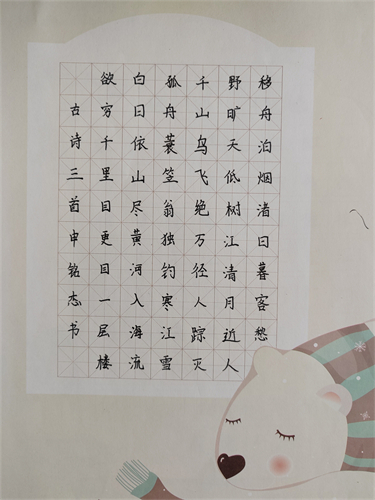 移舟泊烟渚日暮客愁
野旷天低树江清月近人
千山鸟飞绝万径人踪灭
孤舟蓑笠翁独钓寒江雪
白日依山尽黄河入海流
欲穷千里目更目一层楼
古诗三首申铭杰书